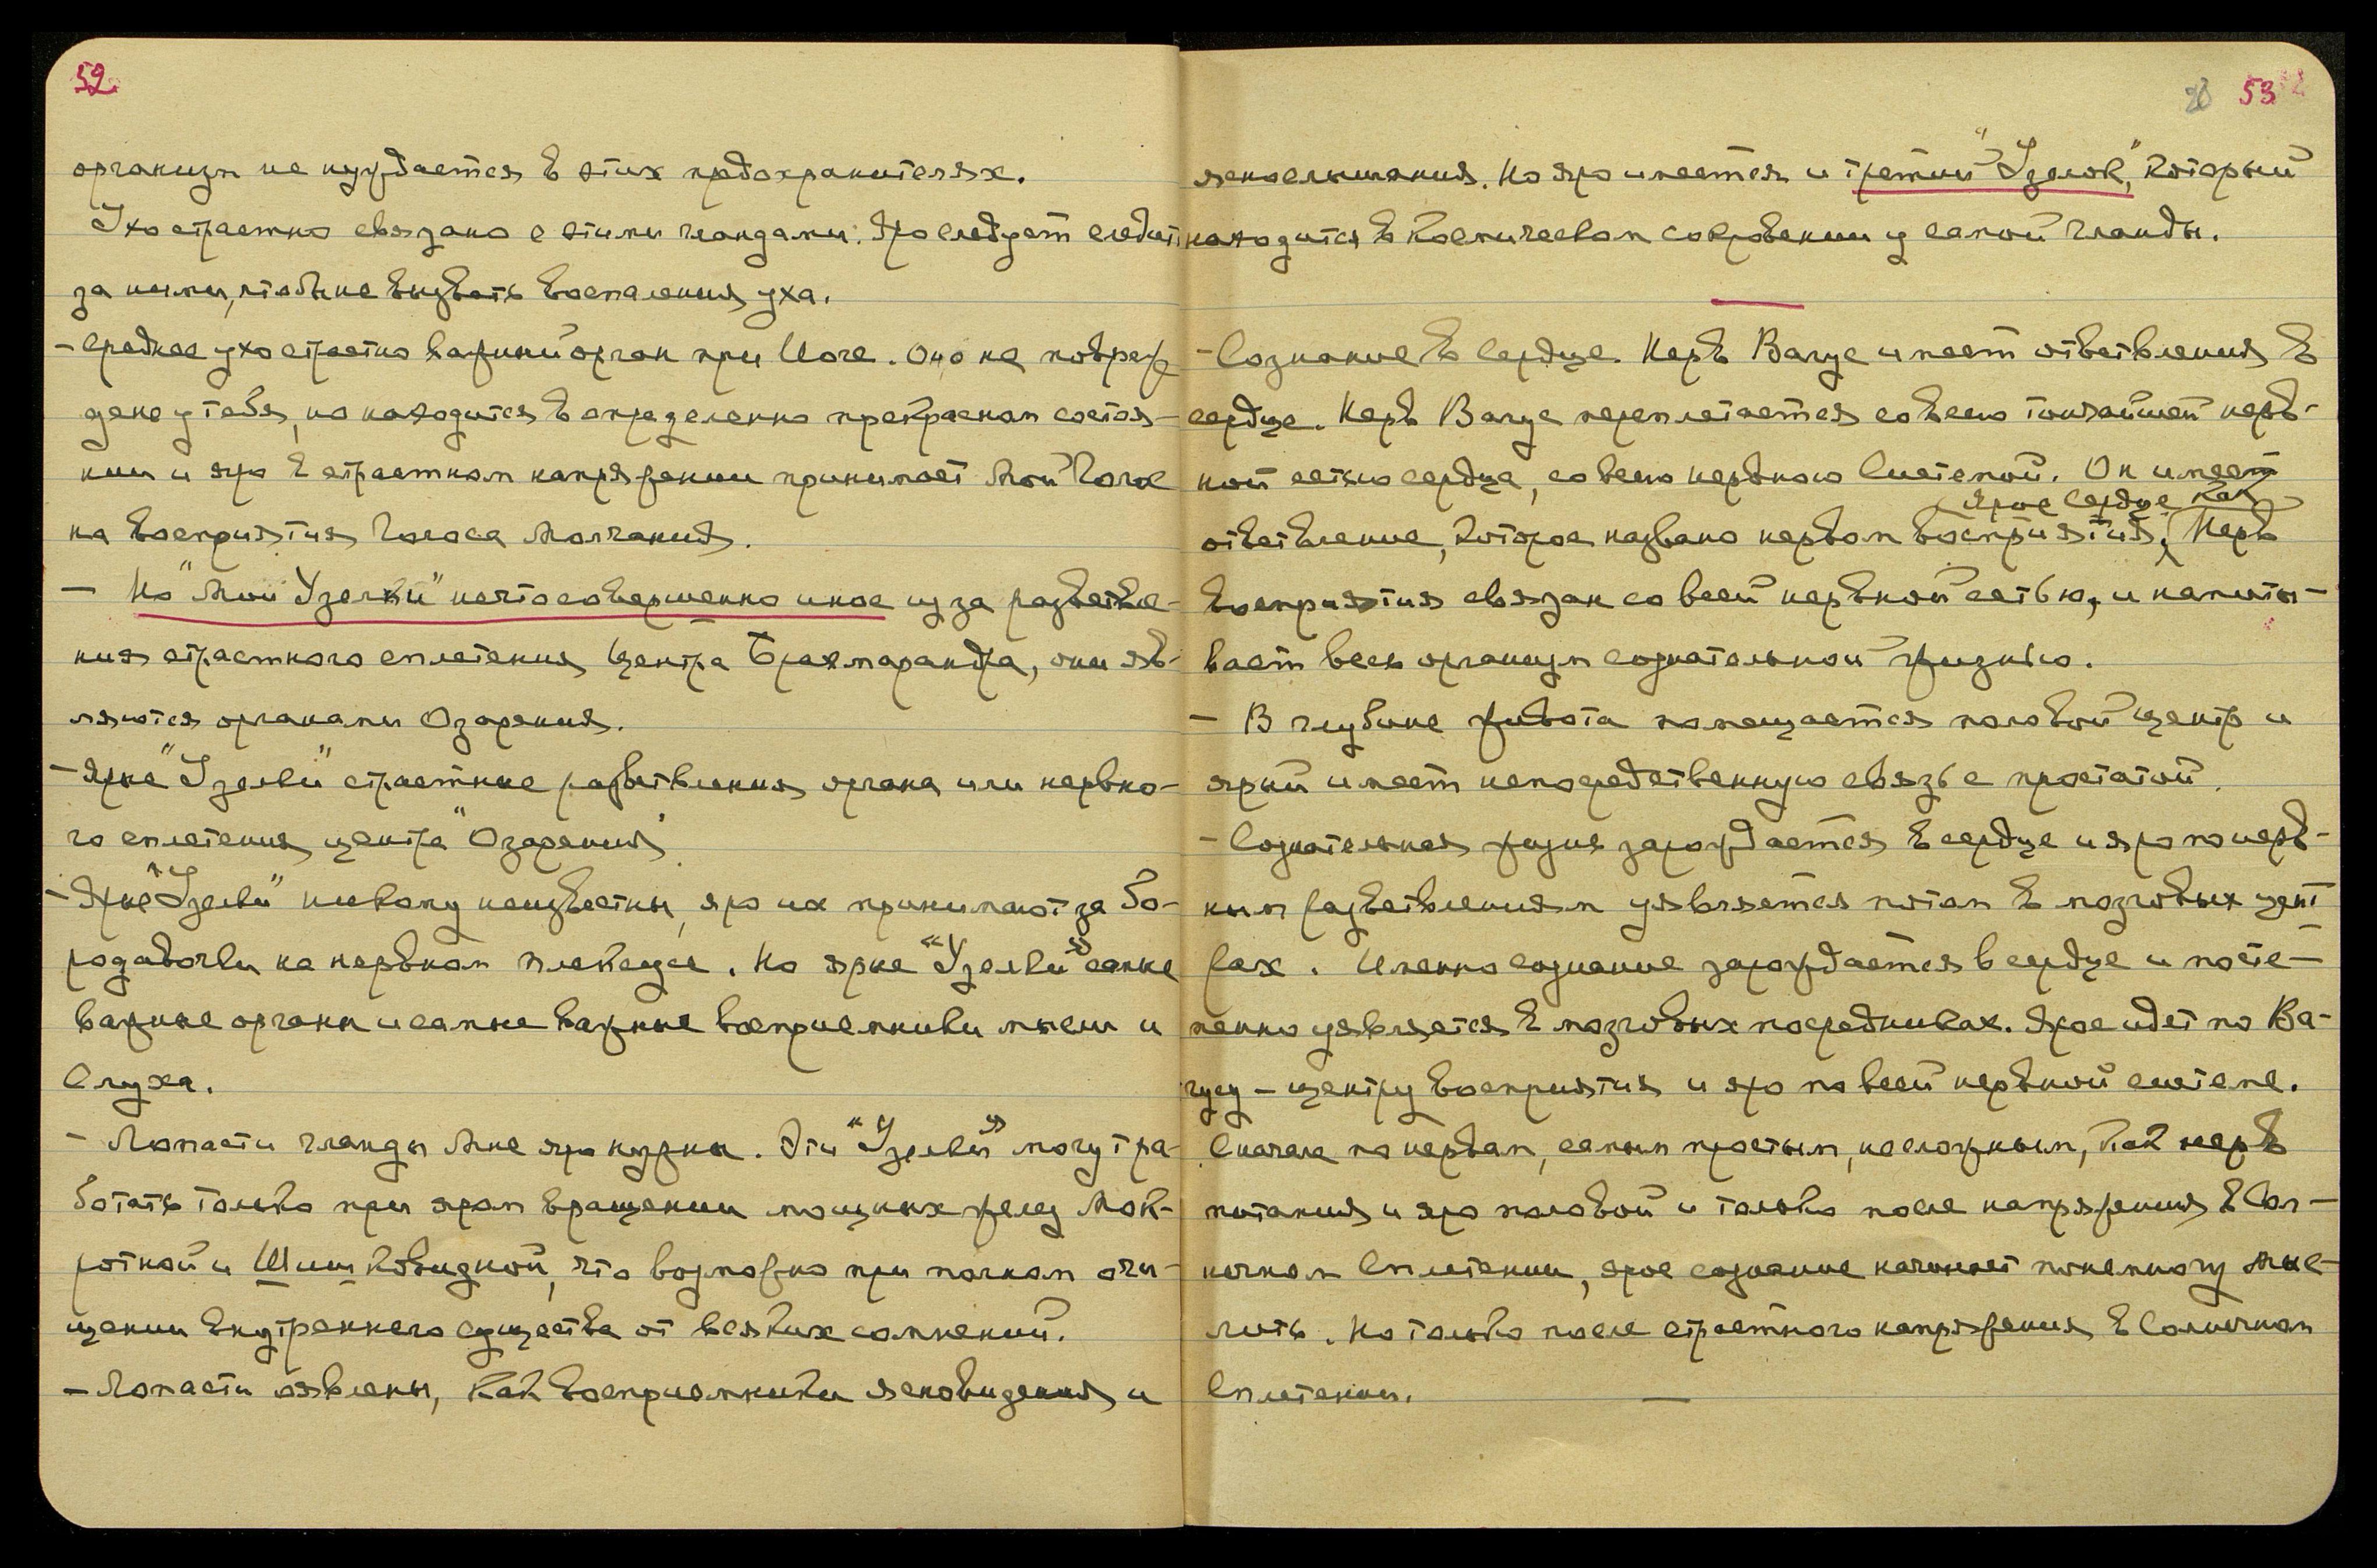 52
организм не нуждается в этих предохранителях.
Ухо страстно связано с этими гландами. Яро следует следить
за ними, чтобы не вызвать воспаления уха.
- Среднее ухо страстно важный орган при Йоге. Оно не повреж
дено у тебя, но находится в определенно прекрасном состоя-
нии и яро в страстном напряжении принимает Мой Голос
на восприятия Голоса Молчания.
- Но "Мои Узелки" нечто совершенно иное из за разветвле-
ния страстного сплетения Центра Брамарандра, они яв-
ляются органами Озарения.
- Ярые "Узелки" страстные разветвления органа или нервно-
го сплетения центра "Озарения"
- Ярые "Узелки" никому неизвестны, яро их принимают за бо-
родавочки на нервном плексусе. Но ярые "Узелки" самые
важные органы и самые важные восприемники мысли и
Слуха.
- Лопасти гланды Мне яро нужны. Эти "Узелки" могут ра-
ботать только при яром вращении мощных желез Мок-
ротной и Шишковидной, что возможно при полном очи-
щении внутреннего существа от всяких сомнений.
- Лопасти явлены, как восприемники ясновидения и
28 53
яснослышания. Но яро имеется и третий "Узелок", который
находится в Космическом сокровении у самой гланды.
- Сознание в Сердце. Нерв Вагус имеет ответвления в
сердце. Нерв Вагус переплетается со всею тончайшей нерв-
ной сетью сердца, со всею нервною Системой. Он имеет
Ярое сердце как
ответвление, которое названо нервом восприятия. Нерв
восприятия связан со всей нервной сетью, и напиты-
вает весь организм сознательной жизнью.
- В глубине живота помещается половой центр и
ярый имеет непосредственную связь с простатой.
- Сознательная жизнь зарождается в сердце и яро по нерв-
ным разветвлениям уявляется потом в мозговых цент
рах. Именно сознание зарождается в сердце и посте-
пенно уявляется в мозговых посредниках. Ярое идет по Ва-
гусу - центру восприятия и яро по всей нервной системе.
Сначала по нервам, самым простым, несложным, как нерв
питания и яро половой и только после напряжения в Сол-
нечном Сплетении, ярое сознание начинает понемногу мыс-
лить. Но только после страстного напряжения в Солнечном
Сплетении.